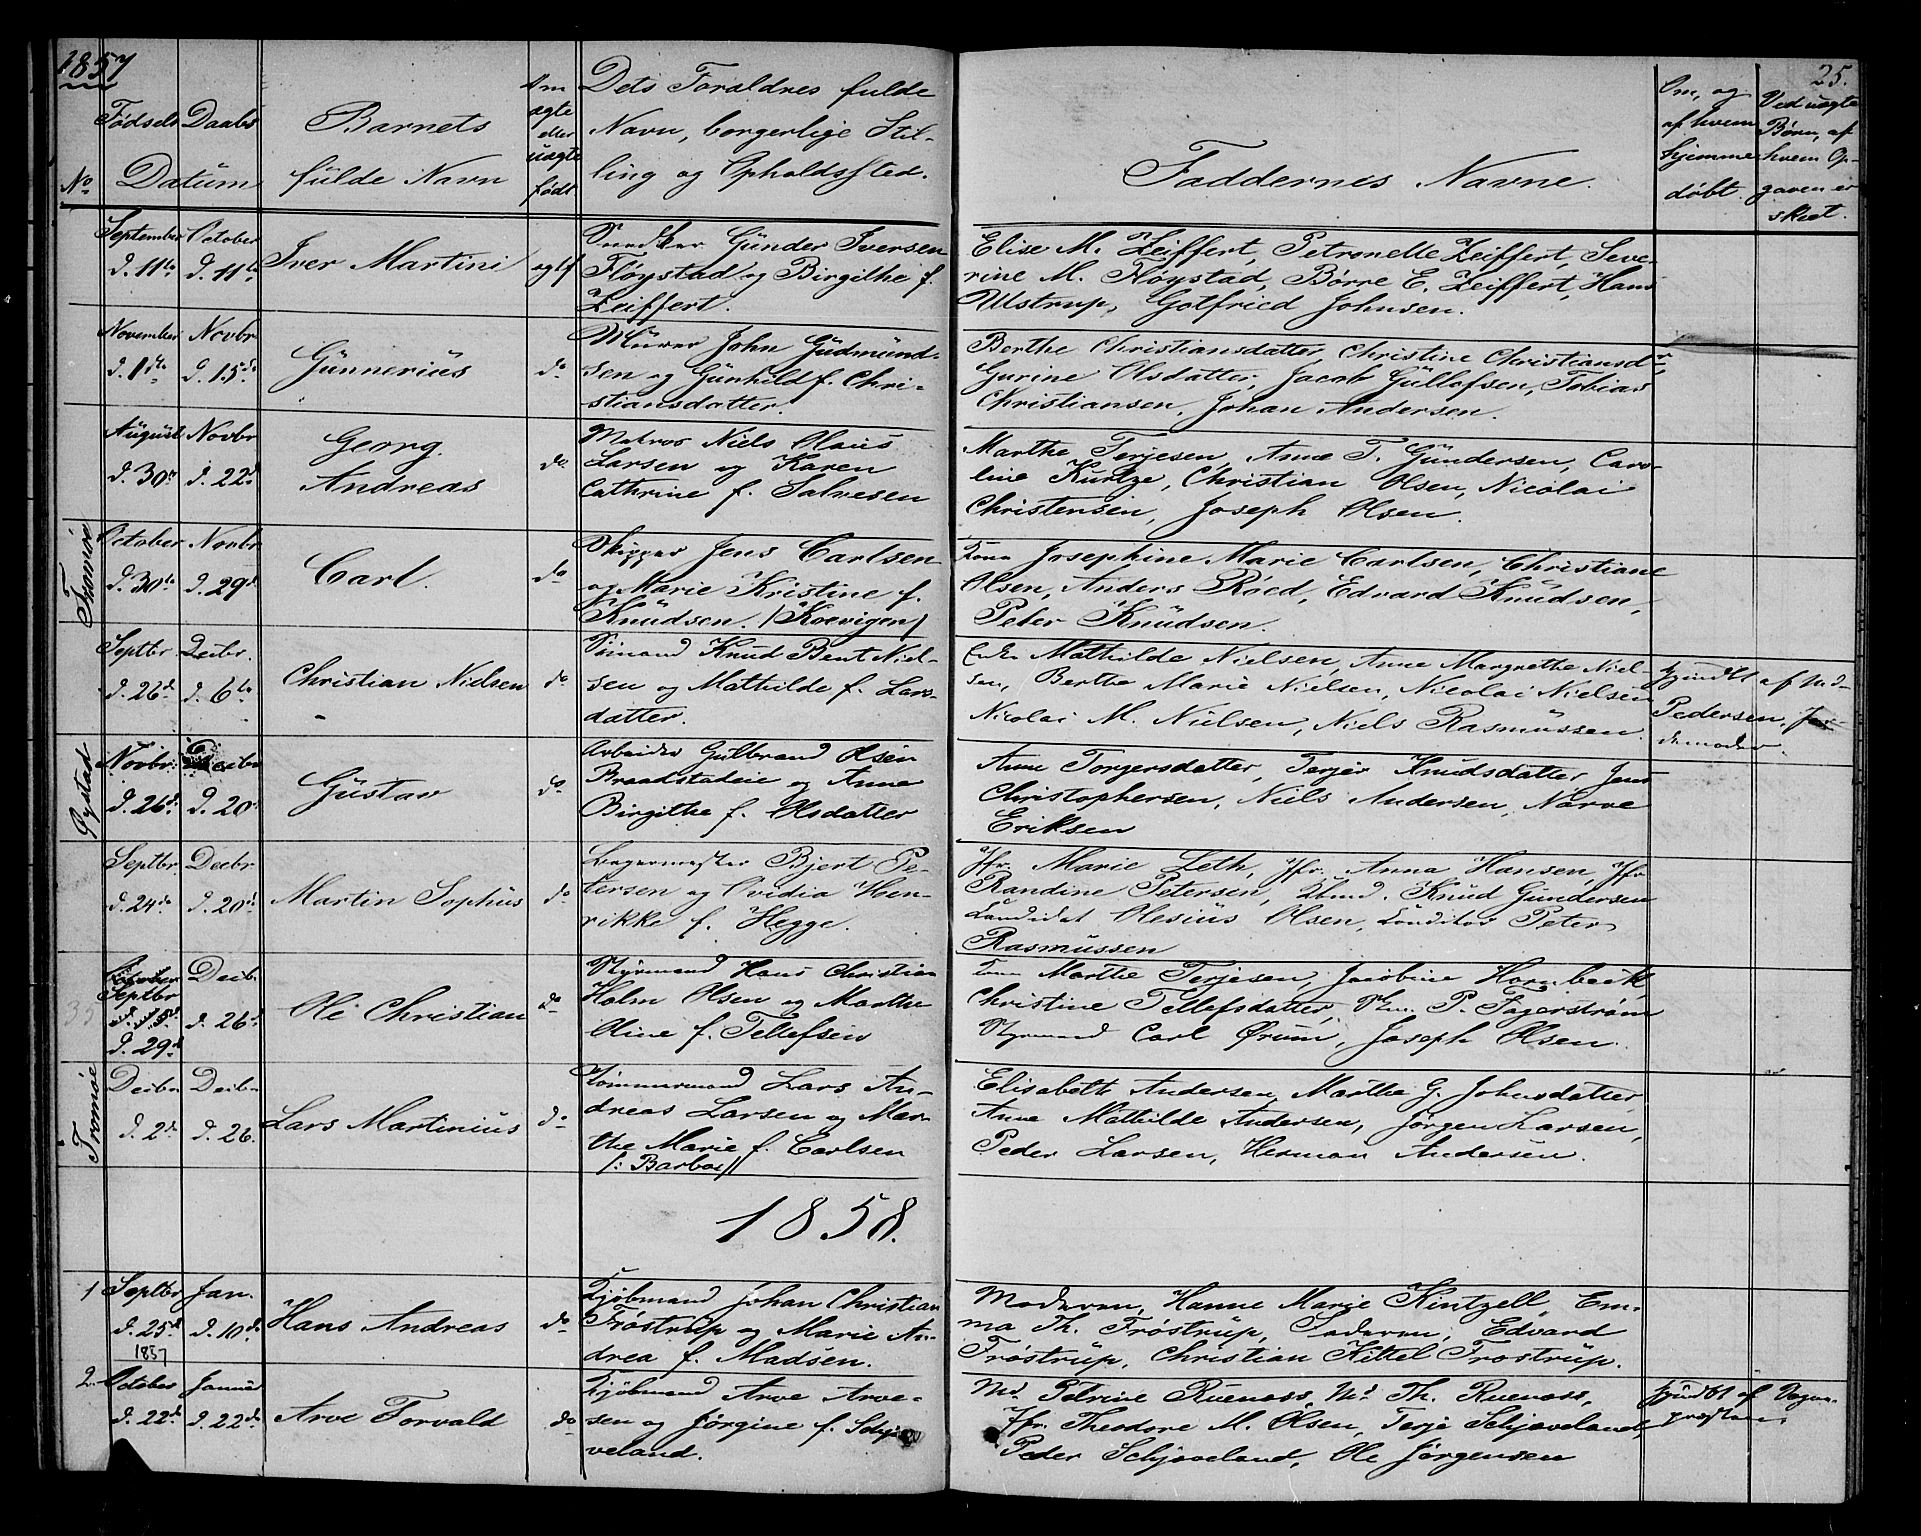 1857
25.
No
Fødsels Daabs
Datum
Barnets
fulde Navn
Om
ægte
eller
uægte
født
Dets Forældres fulde
Navn, borgerlige Stil-
ling og Opholdssted.
Faddernes Navne.
Om, og
af hvem
hjemme
døbt.
Ved uægte
Børn, af
hvem Op-
gaven er
skeet.
September October
d. 11te d. 11te
Iver Martini
ægtf
Gunder Iversen
Fløystad og Birgithe f.
Zeiffert.
Elise M. Zeiffert, Petronelle Zeiffert, Seve-
rine M. Fløystad, Børre E. Zeiffert, Hans
Ulstrup, Gotfried Johnsen.
November Novbr
d. 1ste d. 15de
Gunnerius
do
Murer John Gudmund-
sen og Gunhild f. Chri-
stiansdatter.
Berthe Christiansdatter, Christine Christiansdr,
Gurine Olsdatter, Jacob Gullofsen, Tobias
Christiansen, Johan Andersen.
August Novbr
d. 30te d. 22d
Georg
Andreas
do
Matros Niels Olaus
Larsen og Karen
Cathrine f. Salvesen
Marthe Terjesen, Anne T. Gundersen, Caro-
line Kuntze, Christian Olsen, Nicolai
Christensen, Joseph Olsen.
Tromøe
October Novbr
d. 30te d. 29d
Carl.
do
Skipper Jens Carlsen
og Marie Kristine f.
Knudsen. (Kovigen)
Kone Josephine Marie Carlsen, Christiane
Olsen, Anders Røed, Edvard Knudsen,
Peter Knudsen.
Septbr Decbr.
d. 26d d. 6te
Christian Nielsen
do
Sømand Knud Bent Niel-
sen og Mathilde f. Lars-
datter.
Enke Mathilde Nielsen, Anne Margrethe Niel-
sen, Berthe Marie Nielsen, Nicolai Nielsen
Nicolai M. Nielsen, Niels Rasmussen.
Hjemdbt af Md.
Pedersen, Jor-
demoder.
Øystad
Novbr. Decbr
d. 26d d. 20
Gustav
do
Arbeider Gulbrand Olsen
Braadstadeie og Anne
Birgithe f. Olsdatter
Anne Torgersdatter, Terjer Knudsdatter, Jens
Christophersen, Niels Andersen, Narve
Eriksen
Septbr Decbr
d. 24de d. 20d
Martin Sophus
do
Bagermester Bjert Pe-
tersen og Ovidia Hen-
rikke f. Hegge.
Jfr. Marie Leth, Jfr. Anna Hansen, Jfr
Randine Petersen, Kbmd. Knud Gundersen
Candidat Olesius Olsen, Conditor Peter
Rasmussen
35
Septbr Decbr.
d. 29d d. 26d
Ole Christian
do
Styrmand Hans Christian
Holm Olsen og Marthe
Oline f. Tellefsen
Kone Marthe Terjesen, Jacobine Hornbeck,
Christine Tellefsdatter, P. Fagerstrøm
Styrmand Carl Ørum, Joseph Olsen.
Tromøe
Decbr Decbr
d. 2d d. 26.
Lars Martinius
do
Tømmermand Lars An-
dreas Larsen og Mar-
the Marie f. Carlsen
/: Barboe //
Elisabeth Andersen, Marthe G. Johnsdatter,
Anne Mathilde Andersen, Jørgen Larsen,
Peder Larsen, Herman Andersen.
1858.
1 Septbr Jan.
d. 25d d. 10de
1857
Hans Andreas
do
Kjøbmand Johan Christian
Frøstrup og Marie An-
drea f. Madsen.
Moderen, Hanne Marie Kintzell, Em-
ma Th. Frøstrup, Faderen, Edvard
Frøstrup, Christian Kittel Frostrup.
2. October Januar
d. 22d d. 22de
Arve Torvald
do
Kjøbmand Arve Arve-
sen og Jørgine f. Schjø-
veland.
Md. Petrine Ruenæss, Md. Th. Ruenæss,
Jfr. Theodore M. Olsen, Terje Schjøveland,
Peder Schjøveland, Ole Jørgensen
Hjemdbt af Vogns-
præsten.